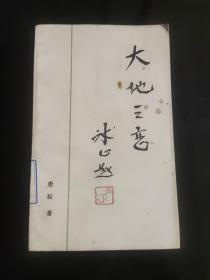 大地之恋
冰心题
唐敏 著